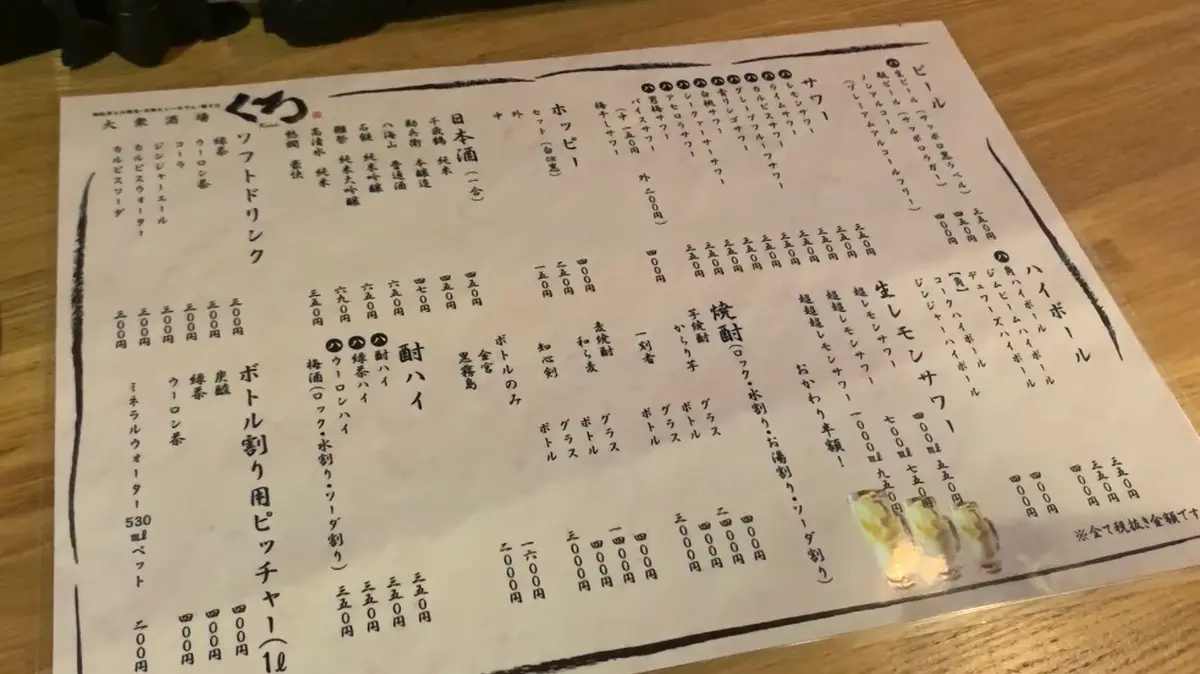 ビール
㋩生ビール（サッポロ黒ラベル） 三五〇円
瓶ビール（サッポロラガー） 四五〇円
ノンアルコールビール 四〇〇円
（プレミアムアルコールフリー）
サワー
㋩レモンサワー 三五〇円
㋩ライムサワー 三五〇円
㋩カルピスサワー 三五〇円
㋩グレープフルーツサワー 三五〇円
㋩青リンゴサワー 三五〇円
㋩白桃サワー 三五〇円
㋩シークァーサーサワー 三五〇円
㋩アセロラサワー 三五〇円
㋩男梅サワー 三五〇円
バイスサワー 四〇〇円
（中 一五〇円 外 二〇〇円）
梅干しサワー
ホッピー
セット（白or黒） 四〇〇円
外 二五〇円
中 一五〇円
日本酒（一合）
千歳鶴 純米 四五〇円
勘兵衛 本醸造 四五〇円
八海山 普通酒 四七〇円
名鏡 純米吟醸 六五〇円
獺祭 純米大吟醸 六五〇円
高清水 純米 六九〇円
熱燗 豪快 三五〇円
くろ
Kuro
大衆酒場
ソフトドリンク
緑茶 三〇〇円
ウーロン茶 三〇〇円
コーラ 三〇〇円
ジンジャーエール 三〇〇円
カルピスウォーター 三〇〇円
カルピスソーダ 三〇〇円
ハイボール
㋩角ハイボール 三五〇円
ジムビームハイボール 三五〇円
デュワーズハイボール 四〇〇円
【角】
コークハイボール 四〇〇円
ジンジャーハイボール 四〇〇円
生レモンサワー
超レモンサワー 四〇〇㎖ 五五〇円
超超レモンサワー 七〇〇㎖ 七五〇円
超超超レモンサワー 一〇〇〇㎖ 九五〇円
おかわり半額！
焼酎（ロック・水割り・お湯割り・ソーダ割り）
芋焼酎
からり芋 グラス 四〇〇円
ボトル 二〇〇〇円
一刻者 グラス 四〇〇円
ボトル 三〇〇〇円
麦焼酎
和ら麦 グラス 四〇〇円
ボトル 一八〇〇円
知心剣 グラス 四〇〇円
ボトル 三〇〇〇円
ボトルのみ
金宮 一六〇〇円
黒霧島 二〇〇〇円
酎ハイ
㋩酎ハイ 三五〇円
㋩緑茶ハイ 三五〇円
㋩ウーロンハイ 三五〇円
梅酒（ロック・水割り・ソーダ割り） 三五〇円
ボトル割り用ピッチャー（1ℓ
炭酸 四〇〇円
緑茶 四〇〇円
ウーロン茶 四〇〇円
ミネラルウォーター530㎖ペット 二〇〇円
※全て税抜き金額です